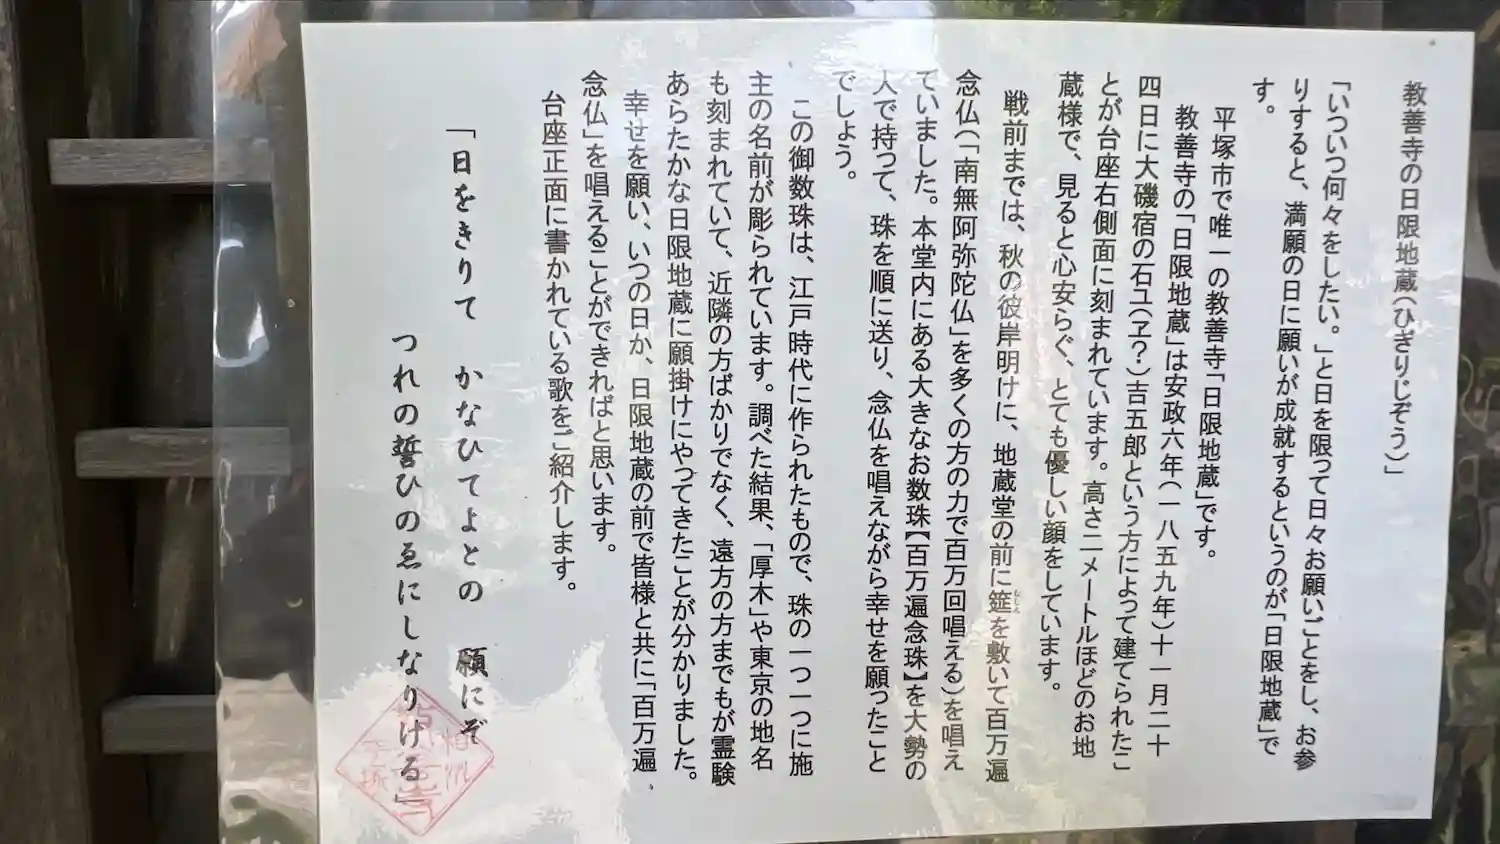 教善寺の日限地蔵(ひぎりじぞう)」
「いついつ何々をしたい。」と日を限って日々お願いごとをし、お参
りすると、満願の日に願いが成就するというのが「日限地蔵」で
す。
平塚市で唯一の教善寺「日限地蔵」です。
教善寺の「日限地蔵」は安政六年(一八五九年)十一月二十
四日に大磯宿の石工(ヱ?)吉五郎という方によって建てられたこ
とが台座右側面に刻まれています。高さ二メートルほどのお地
蔵様で、見ると心安らぐ、とても優しい顔をしています。
戦前までは、秋の彼岸明けに、地蔵堂の前に筵を敷いて百万遍
むしろ
念仏(「南無阿弥陀仏」を多くの方の力で百万回唱える)を唱え
ていました。本堂内にある大きなお数珠【百万遍念珠】を大勢の
人で持って、珠を順に送り、念仏を唱えながら幸せを願ったこと
でしょう。
この御数珠は、江戸時代に作られたもので、珠の一つ一つに施
主の名前が彫られています。調べた結果、「厚木」や東京の地名
も刻まれていて、近隣の方ばかりでなく、遠方の方までもが霊験
あらたかな日限地蔵に願掛けにやってきたことが分かりました。
幸せを願い、いつの日か、日限地蔵の前で皆様と共に「百万遍
念仏」を唱えることができればと思います。
台座正面に書かれている歌をご紹介します。
「日をきりて かなひてよとの 願にぞ
つれの誓ひのゑにしなりける」
相州
平塚